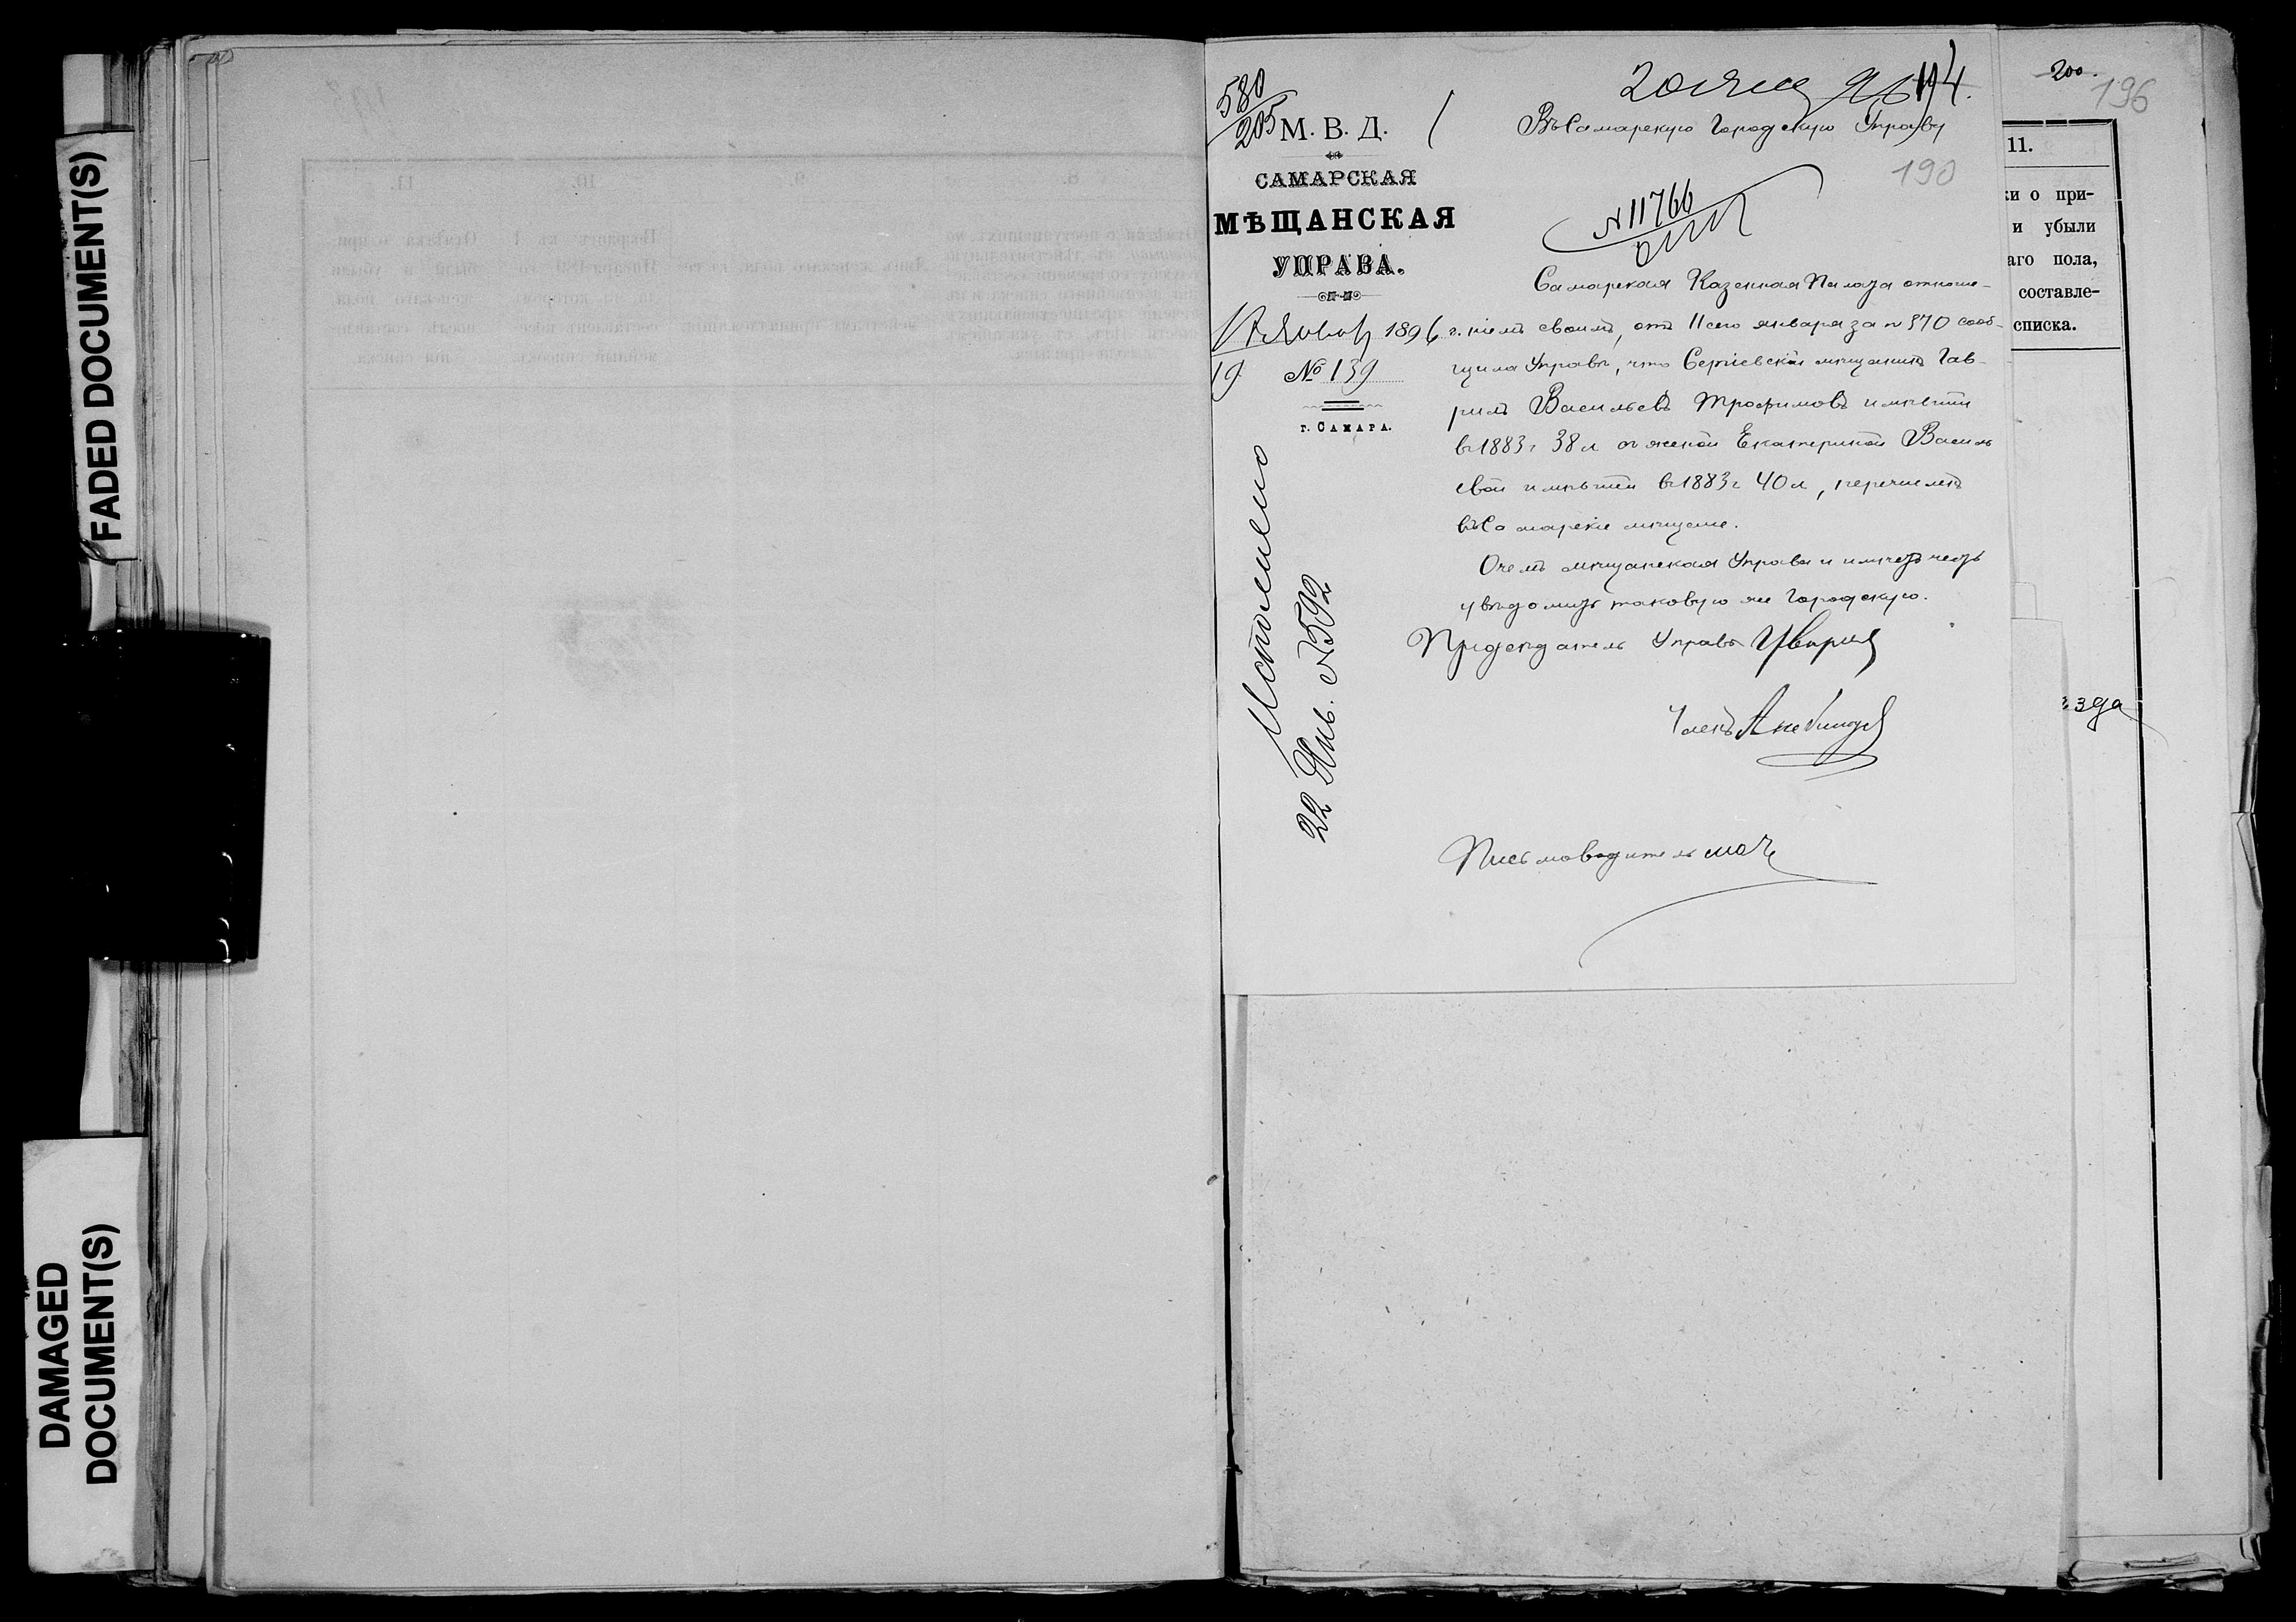 FADED DOCUMENT(S)
DAMAGED
DOCUMENT(S)
580
205
М. В. Д.
САМАРСКАЯ
МѢЩАНСКАЯ
УПРАВА.
1896 г.
19
№ 139
г. САМАРА.
Исполнено
22 Янв. №592
194.
Въ Самарскую Городскую Управу
190
№11766
Самарская Казенная Палата отноше-
ніемъ своимъ, отъ 11 сего января за № 370 сооб-
щила Управѣ, что Сергіевскій мѣщанинъ Гав-
рилъ Васильевъ Трофимовъ имѣвшій
въ 1883 г 38 л съ женой Екатериной Василь
евой имѣвшей въ 1883 г 40 л, перечисленъ
въ Самарскіе мѣщане.
О чемъ мѣщанская Управа и имѣетъ честь
увѣдомить таковую же Городскую.
Предсѣдатель Управы
Членъ
Письмоводитель
200.
196
11.
ки о при-
и убыли
аго пола,
составле-
списка.
зда